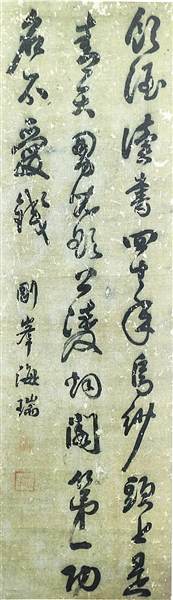 飲酒讀書四十年烏紗頭上是
青天男兒欲上凌烟閣第一功
名不愛錢
剛峯海瑞